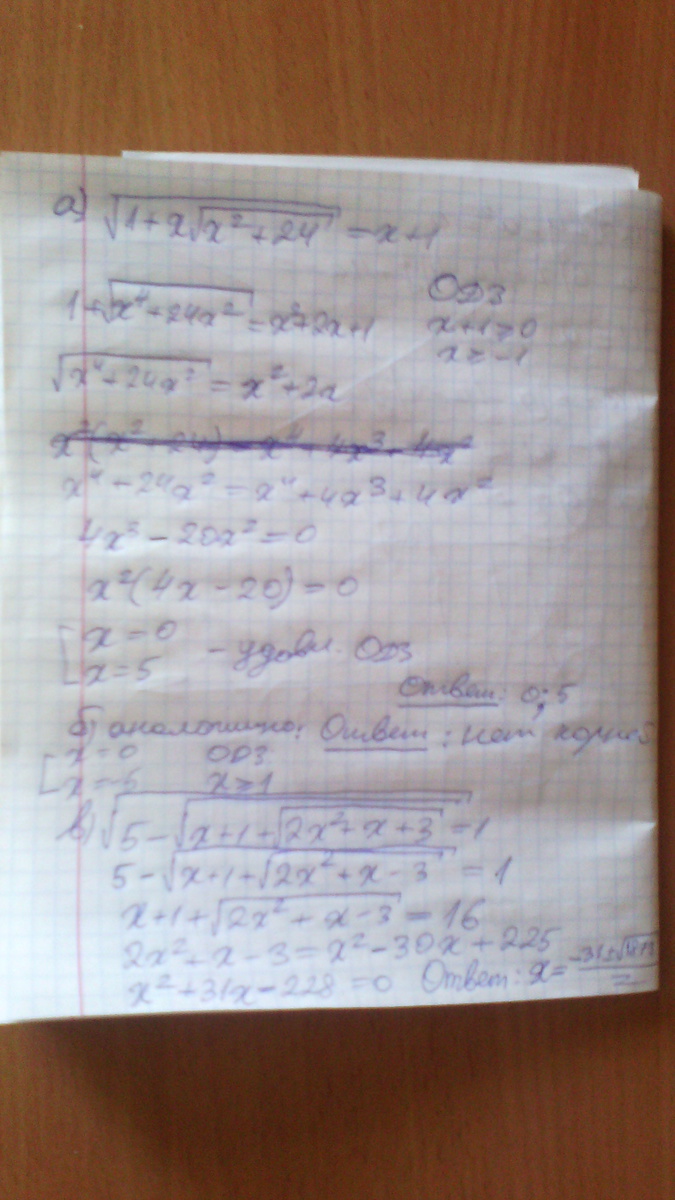 а) √(1+x√(x²+24)) = x+1
1+√(x⁴+24x²) = x²+2x+1
ОДЗ
x+1≥0
x≥-1
√(x⁴+24x²) = x²+2x
x⁴+24x² = x⁴+4x³+4x²
4x³-20x²=0
x²(4x-20)=0
[x=0
x=5 - удовл. ОДЗ
Ответ: 0; 5
б) аналогично: Ответ: нет корней
[x=0 ОДЗ
x=-5 x≥1
в) √(5-√(x+1+√(2x²+x+3))) = 1
5-√(x+1+√(2x²+x-3)) = 1
x+1+√(2x²+x-3) = 16
2x²+x-3 = x²-30x+225
x²+31x-228=0 Ответ: x=